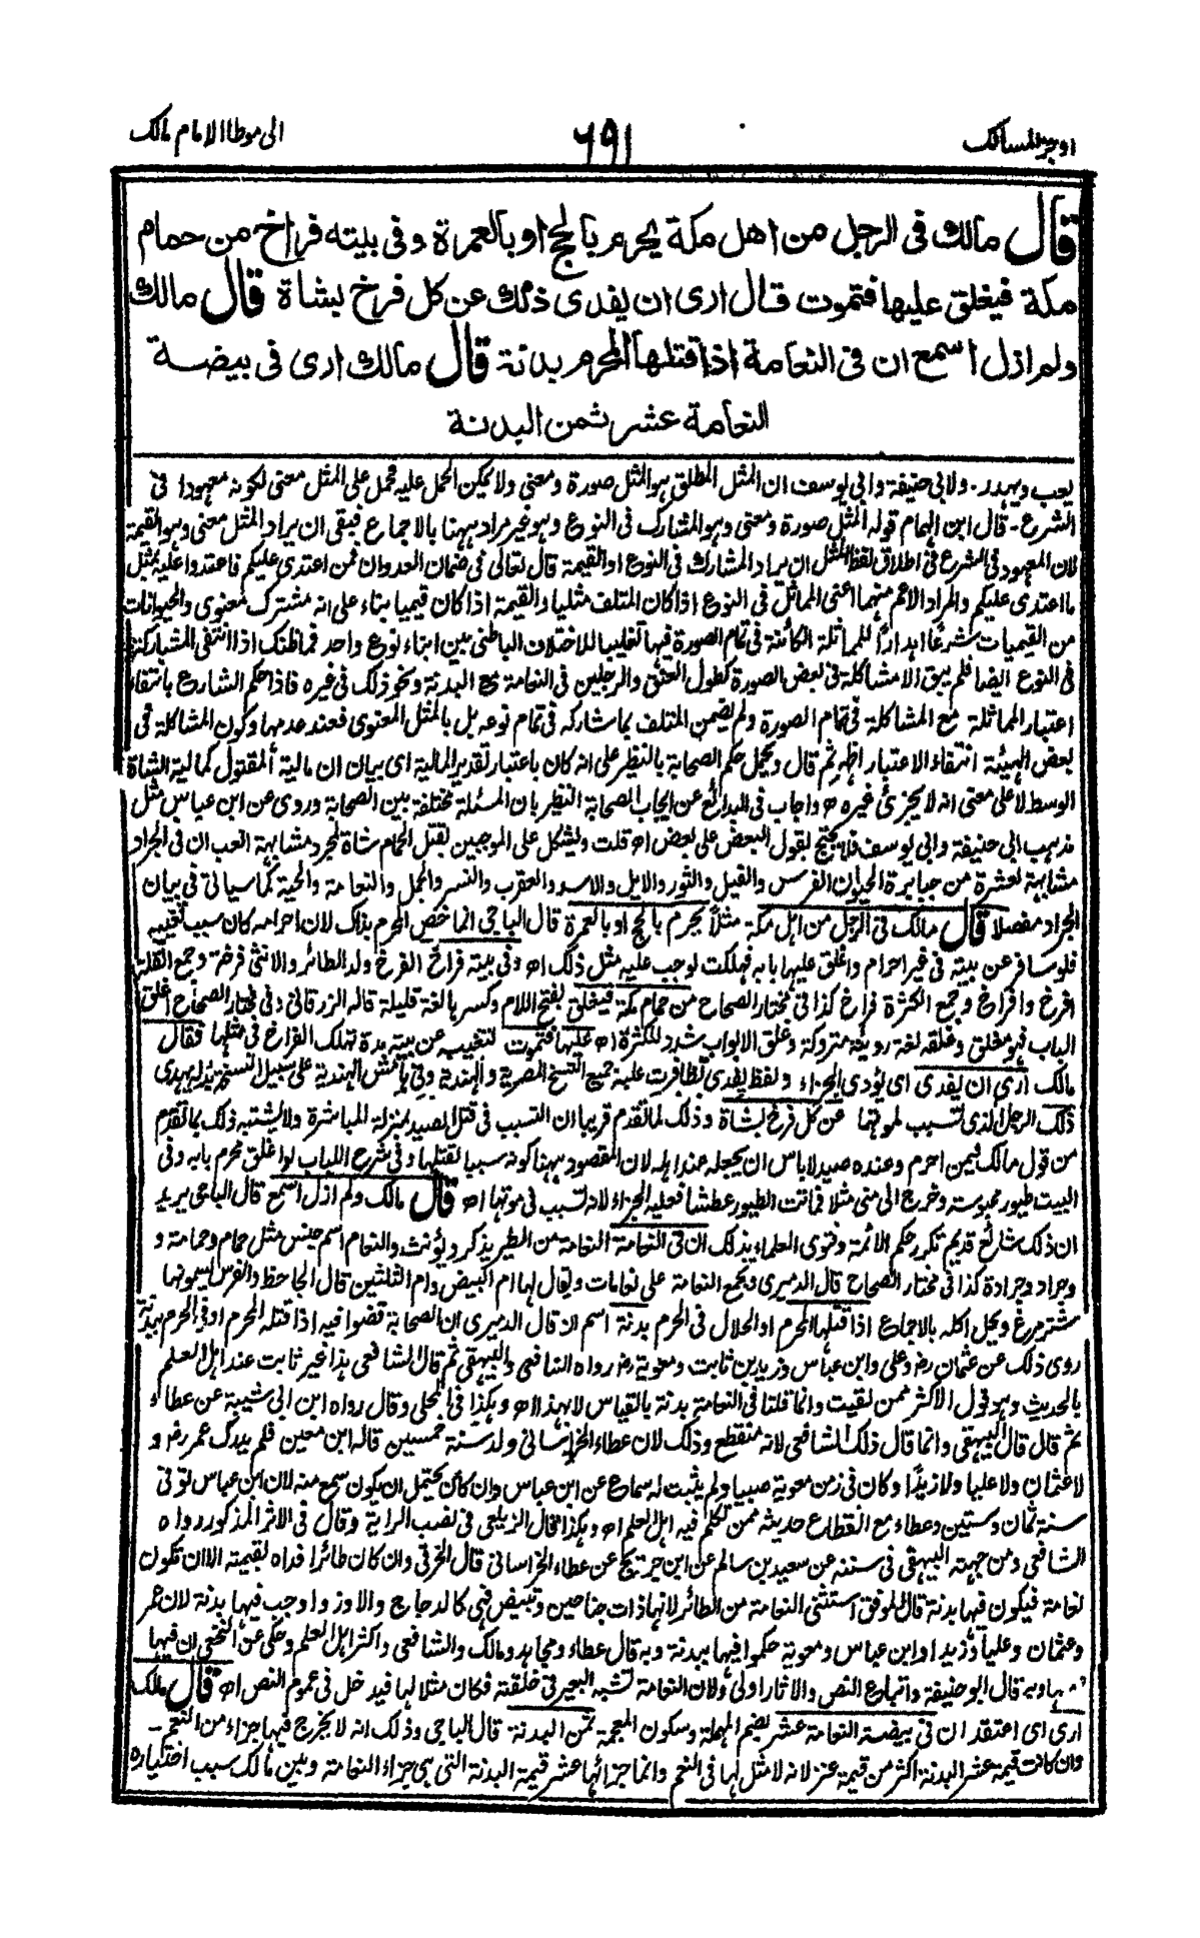 اوجز المسالك
٦٩١
الى موطا الامام مالك
قال مالك فى الرجل من اهل مكة يحرم بالحج او بالعمرة وفى بيته فراخ من حمام
مكة فيغلق عليها فتموت قال ارى ان يفدى ذلك عن كل فرخ بشاة قال مالك
ولم ازل اسمع ان فى النعامة اذا قتلها المحرم بدنة قال مالك ارى فى بيضة
النعامة عشر ثمن البدنة
يعب ويهدر۔ ولابى حنيفة وابى يوسف ان المثل المطلق هو المثل صورة ومعنى ولا يمكن الحمل عليه فحمل على المثل معنى لكونه معهودا فى
الشرع۔ قال ابن الهمام قوله المثل صورة ومعنى وهو المشارك فى النوع وهو غير مراد ههنا بالاجماع فبقى ان يراد المثل معنى وهو القيمة
لان المعهود فى الشرع فى اطلاق لفظ المثل ان يراد المشارك فى النوع او القيمة قال تعالى فى ضمان العدوان فمن اعتدى عليكم فاعتدوا عليه بمثل
ما اعتدى عليكم والمراد الاعم منهما اعنى المماثل فى النوع اذا كان المتلف مثليا والقيمة اذا كان قيميا بناء على انه مشترك معنوى والحيوانات
من القيميات شرعا اهدارا للمماثلة الكائنة فى تمام الصورة فيها تغليبا للاختلاف الباطنى بين ابناء نوع واحد فما ظنك اذا انتفى المشاركة
فى النوع ايضا فلم يبق الا مشاكلة فى بعض الصورة كطول العنق والرجلين فى النعامة مع البدنة ونحو ذلك فى غيره فاذا حكم الشارع بانتفاء
اعتبار المماثلة مع المشاكلة فى تمام الصورة ولم يضمن المتلف بما شاركه فى تمام نوعه بل بالمثل المعنوى فعند عدمها وكون المشاكلة فى
بعض الهيئة انتفاء الاعتبار اظهر ثم قال ويحمل حكم الصحابة بالنظير على انه كان باعتبار تقدير المالية اى بيان ان مالية المقتول كمالية الشاة
الوسط لا على معنى انه لا يجزئ غيره اه واجاب فى البدائع عن ايجاب الصحابة النظير بان المسئلة مختلفة بين الصحابة وروى عن ابن عباس مثل
مذهب ابى حنيفة وابى يوسف فلا يحتج بقول البعض على بعض اه قلت ويشكل على الموجبين بقتل الحمام شاة لمجرد مشابهة العب ان فى الجراد
مشابهة لعشرة من جبابرة الحيوان الفرس والفيل والثور والايل والاسد والعقرب والنسر والجمل والنعامة والحية كما سياتى فى بيان
الجراد مفصلا قال مالك فى الرجل من اهل مكة مثلا يحرم بالحج او بالعمرة قال الباجى انما خص المحرم بذلك لان احرامه كان سبب تغيبه
فلو سافر عن بيته فى غير احرام واغلق عليها بابه فهلكت لوجب عليه مثل ذلك اه وفى بيته فراخ الفرخ ولد الطائر والانثى فرخة وجمع القلة
افرخ وافراخ وجمع الكثرة فراخ كذا فى مختار الصحاح من حمام مكة فيغلق بفتح اللام وكسرها لغة قليلة قاله الزرقانى وفى مختار الصحاح اغلق
الباب فهو مغلق وغلقه لغة رديئة متروكة وغلق الابواب شدد للكثرة اه عليها فتموت لتغيبه عن بيته مدة تهلك الفراخ فى مثلها فقال
مالك ارى ان يفدى اى يؤدى الجزاء ولفظ يفدى تظافرت عليه جميع النسخ المصرية والهندية وفى هامش الهندية على سبيل النسخة ليهدى
ذلك الرجل الذى تسبب لموتها عن كل فرخ بشاة وذلك لما تقدم قريبا ان التسبب فى قتل الصيد بمنزلة المباشرة ولا يشتبه ذلك بما تقدم
من قول مالك فيمن احرم وعنده صيد لا باس ان يجعله عند اهله لان المقصود ههنا كونه سببا لقتلها وفى شرح اللباب لو اغلق محرم بابه وفى
البيت طيور محبوسة وخرج الى منى مثلا فماتت الطيور عطشا فعليه الجزاء لانه تسبب فى موتها اه قال مالك ولم ازل اسمع قال الباجى يريد
ان ذلك شائع قديم تكرر حكم الائمة وفتوى العلماء بذلك ان فى النعامة النعامة من الطير يذكر ويؤنث والنعام اسم جنس مثل حمام وحمامة و
وجراد وجرادة كذا فى مختار الصحاح قال الدميرى ويجمع النعامة على نعامات ويقال لها ام البيض وام الثلثين قال الجاحظ والفرس يسمونها
شتر مرغ ويحل اكله بالاجماع اذا قتلها المحرم او الحلال فى الحرم بدنة اسم ان قال الدميرى ان الصحابة قضوا فيه اذا قتله المحرم او فى الحرم ببدنة
روى ذلك عن عثمان رض وعلى وابن عباس وزيد بن ثابت ومعوية رض رواه الشافعى والبيهقى ثم قال الشافعى هذا غير ثابت عند اهل العلم
بالحديث وهو قول الاكثر ممن لقيت وانما قلنا فى النعامة بدنة بالقياس لا بهذا اه وهكذا فى المحلى وقال رواه ابن ابى شيبة عن عطاء
ثم قال قال البيهقى وانما قال ذلك الشافعى لانه منقطع وذلك لان عطاء الخراسانى ولد سنة خمسين قاله ابن معين فلم يدرك عمر رض و
لا عثمان ولا عليا ولا زيدا وكان فى زمن معوية صبيا ولم يثبت له سماع عن ابن عباس وان كان يحتمل ان يكون سمع منه لان ابن عباس توفى
سنة ثمان وستين وعطاء مع انقطاع حديثه ممن تكلم فيه اهل العلم اه وهكذا قال الزيلعى فى نصب الراية وقال فى الاثر المذكور رواه
الشافعى ومن جهته البيهقى فى سننه عن سعيد بن سالم عن ابن جريج عن عطاء الخراسانى قال الخرقى وان كان طائرا فداه بقيمته الا ان تكون
نعامة فيكون فيها بدنة قال الموفق استثنى النعامة من الطائر لانها ذات جناحين وتبيض فهى كالدجاج والاوز واوجب فيها بدنة لان عمر
وعثمان وعليا وزيدا وابن عباس ومعوية حكموا فيها ببدنة وبه قال عطاء ومجاهد ومالك والشافعى واكثر اهل العلم وحكى عن النخعى ان فيها
قيمتها وبه قال ابو حنيفة واتباع النص والاثار اولى ولان النعامة تشبه البعير فى خلقته فكان مثلا لها فيدخل فى عموم النص اه قال مالك
ارى اى اعتقد ان فى بيضة النعامة عشر بضم المهملة وسكون المعجمة ثمن البدنة قال الباجى وذلك انه لا يخرج فيها جزاء من النعم۔
وان كانت قيمة عشر البدنة اكثر من قيمة عنز لانه لا مثل لها فى النعم وانما جزائها عشر قيمة البدنة التى هى جزاء النعامة وبين مالك سبب اختياره